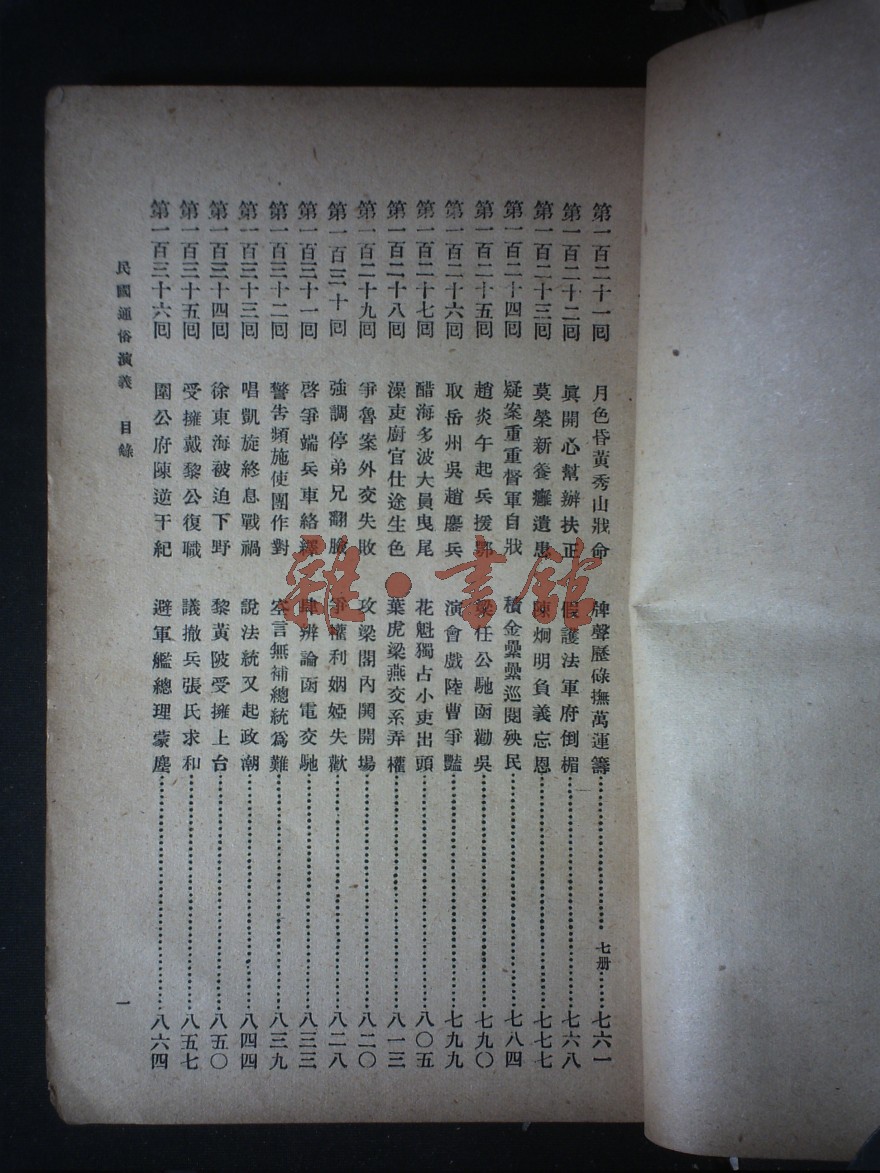 第一百二十一回 月色昏黃秀山戕命 牌聲歷碌撫萬運籌 七册 七六一
第一百二十二回 眞開心幫辦扶正 假護法軍府倒楣 七六八
第一百二十三回 莫榮新養癰遺患 陳炯明負義忘恩 七七七
第一百二十四回 疑案重重督軍自戕 積金纍纍巡閱殃民 七八四
第一百二十五回 趙炎午起兵援鄂 梁任公馳函勸吳 七九〇
第一百二十六回 取岳州吳趙鏖兵 演會戲陸曹爭豔 七九九
第一百二十七回 醋海多波大員曳尾 花魁獨占小吏出頭 八〇五
第一百二十八回 澡吏廚官仕途生色 葉虎梁燕交系弄權 八一三
第一百二十九回 爭魯案外交失敗 攻梁閣內鬨開場 八二〇
第一百三十回 強調停弟兄翻臉 爭權利姻婭失歡 八二八
第一百三十一回 啓爭端兵車絡繹 肆辨論函電交馳 八三三
第一百三十二回 警告頻施使團作對 空言無補總統爲難 八三九
第一百三十三回 唱凱旋終息戰禍 說法統又起政潮 八四四
第一百三十四回 徐東海被迫下野 黎黃陂受擁上台 八五〇
第一百三十五回 受擁戴黎公復職 議撤兵張氏求和 八五七
第一百三十六回 圍公府陳逆干紀 避軍艦總理蒙塵 八六四
民國通俗演義 目錄 一
雜·書館